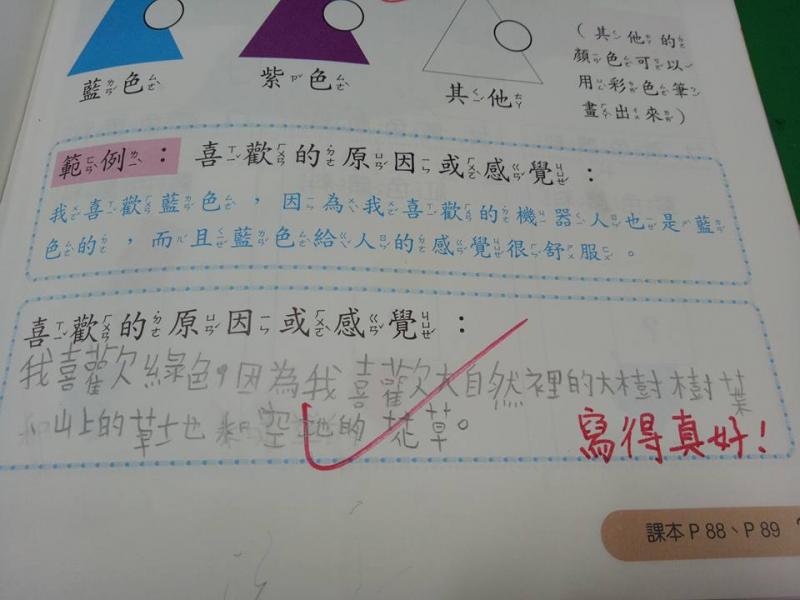 藍色 紫色 其他
(其他的
顏色可以
用彩色筆
畫出來)
範例：喜歡的原因或感覺：
我喜歡藍色，因為我喜歡的機器人也是藍
色的，而且藍色給人的感覺很舒服。
喜歡的原因或感覺：
我喜歡綠色，因為我喜歡大自然裡的大樹樹葉
和山上的草土也和空地的花草。
寫得真好！
課本P88、P89